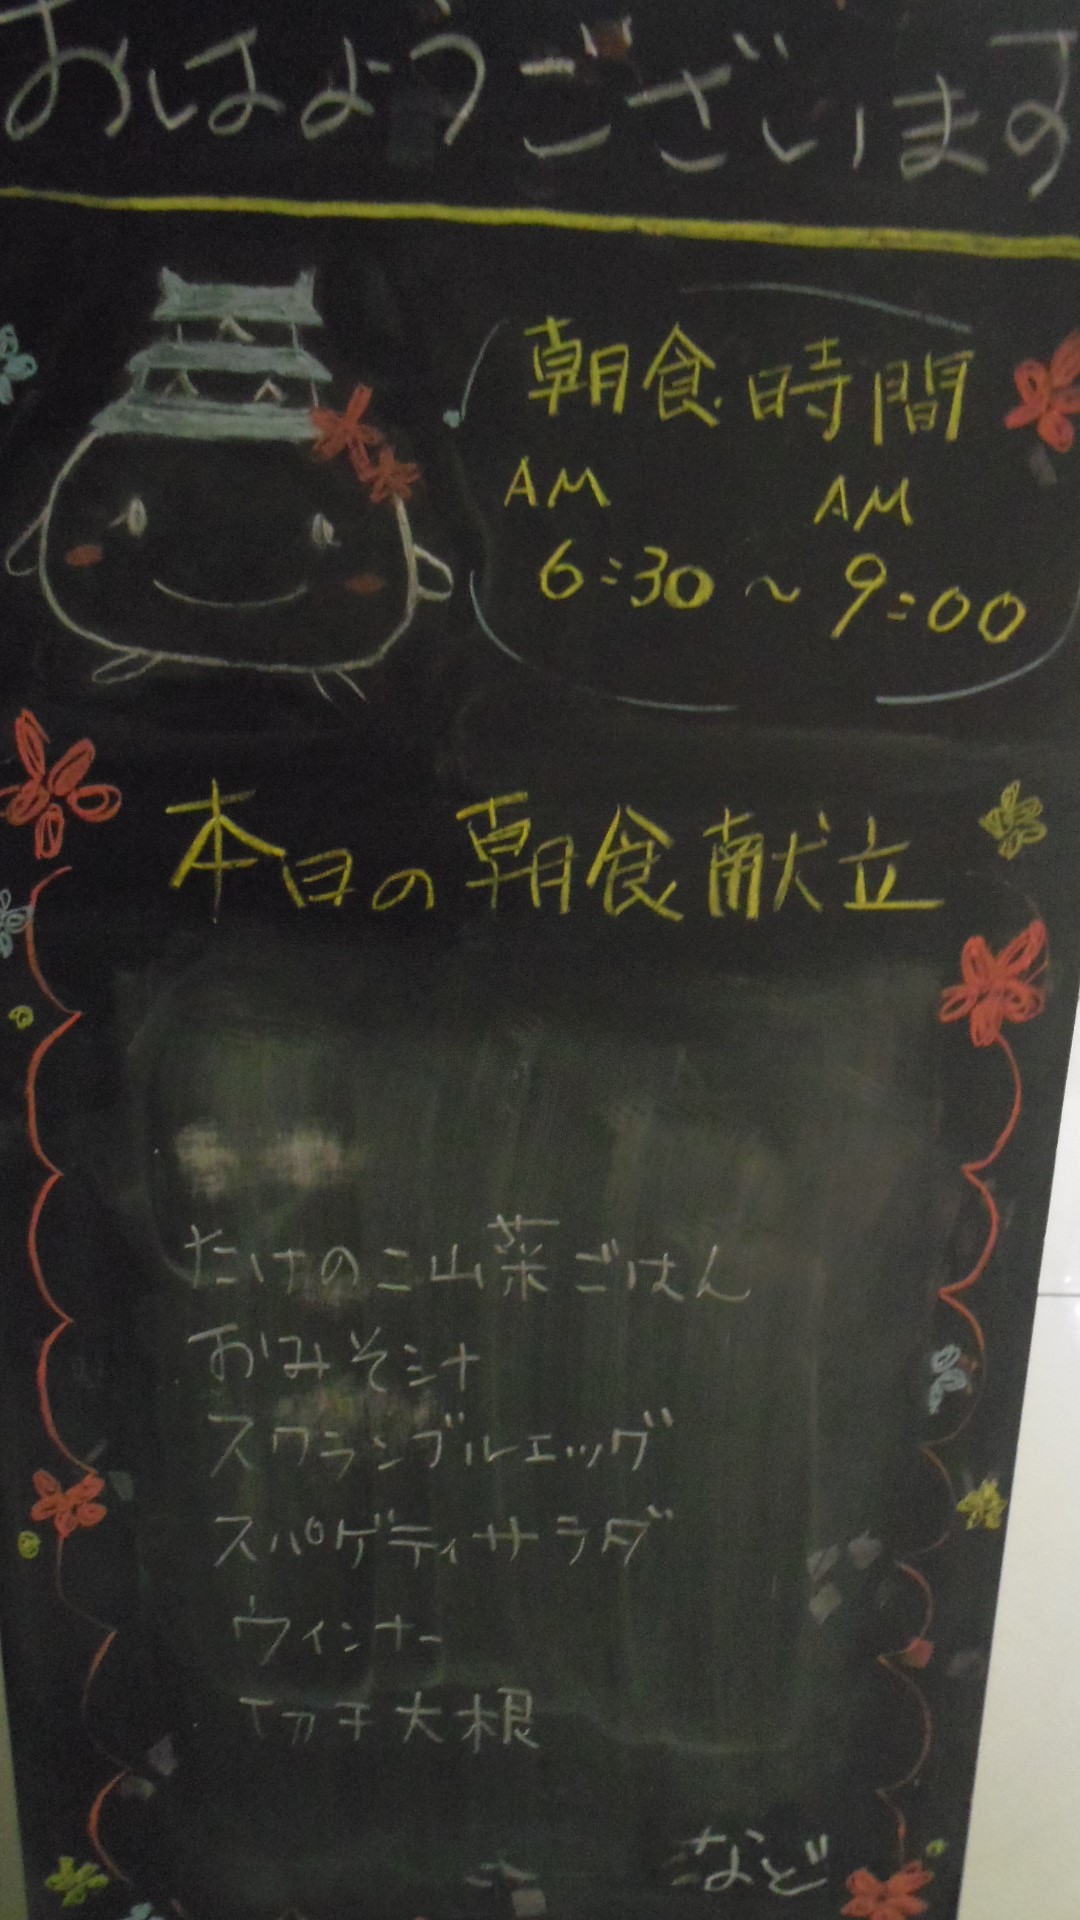 おはようございます
朝食時間
AM AM
6:30～9:00
本日の朝食献立
たけのこ山菜ごはん
おみそ汁
スクランブルエッグ
スパゲティサラダ
ウィンナー
切干大根
など